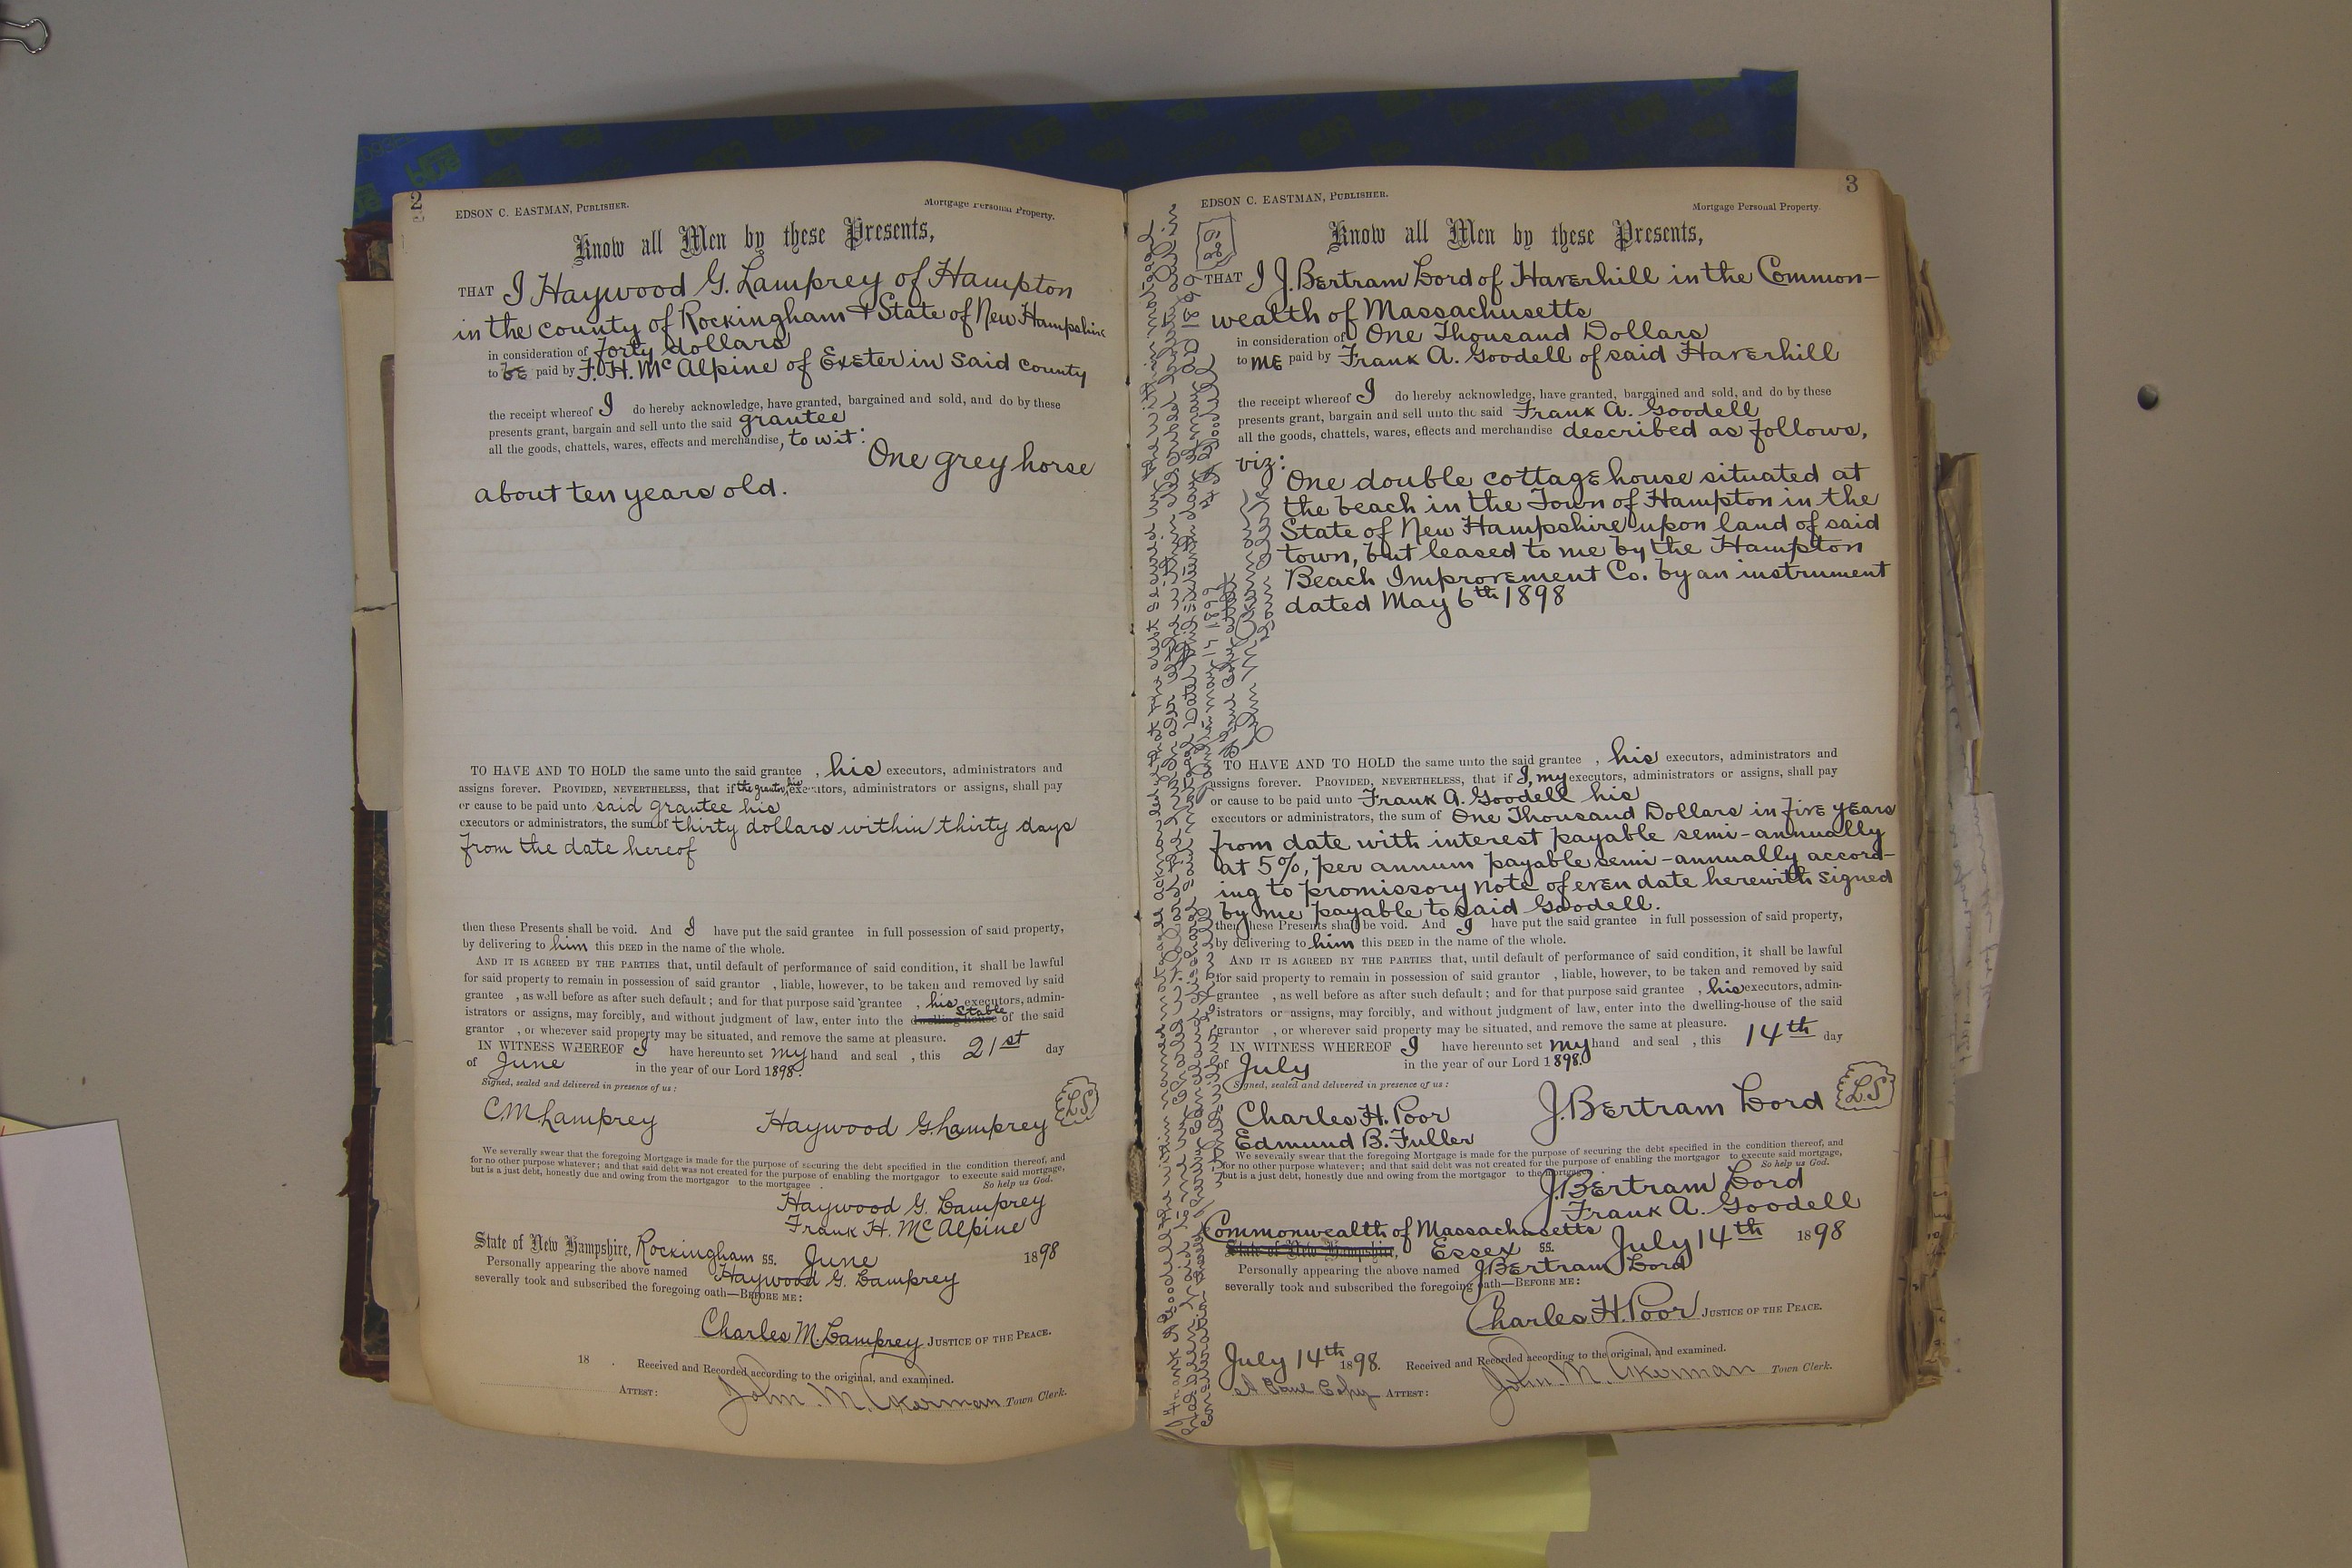 2
EDSON C. EASTMAN, PUBLISHER.
Mortgage Personal Property.
Know all Men by these Presents,
THAT I Haywood G. Lamprey of Hampton
in the county of Rockingham & State of New Hampshire
in consideration of forty dollars
to be paid by F. H. McAlpine of Exeter in said county
the receipt whereof I do hereby acknowledge, have granted, bargained and sold, and do by these
presents grant, bargain and sell unto the said grantee
all the goods, chattels, wares, effects and merchandise, to wit:
One grey horse
about ten years old.
TO HAVE AND TO HOLD the same unto the said grantee , his executors, administrators and
assigns forever. PROVIDED, NEVERTHELESS, that if the grantor, his executors, administrators or assigns, shall pay
or cause to be paid unto said grantee his
executors or administrators, the sum of thirty dollars within thirty days
from the date hereof
then these Presents shall be void. And I have put the said grantee in full possession of said property,
by delivering to him this DEED in the name of the whole.
AND IT IS AGREED BY THE PARTIES that, until default of performance of said condition, it shall be lawful
for said property to remain in possession of said grantor , liable, however, to be taken and removed by said
grantee , as well before as after such default; and for that purpose said grantee , his executors, admin-
istrators or assigns, may forcibly, and without judgment of law, enter into the dwelling-house Stable of the said
grantor , or wherever said property may be situated, and remove the same at pleasure.
IN WITNESS WHEREOF I have hereunto set my hand and seal , this 21st day
of June in the year of our Lord 1898.
Signed, sealed and delivered in presence of us:
C.M. Lamprey Haywood G. Lamprey L.S
We severally swear that the foregoing Mortgage is made for the purpose of securing the debt specified in the condition thereof, and
for no other purpose whatever; and that said debt was not created for the purpose of enabling the mortgagor to execute said mortgage,
but is a just debt, honestly due and owing from the mortgagor to the mortgagee
So help us God.
Haywood G. Lamprey
Frank H. McAlpine
State of New Hampshire, Rockingham ss. June 1898
Personally appearing the above named Haywood G. Lamprey
severally took and subscribed the foregoing oath—BEFORE ME:
Charles M. Lamprey JUSTICE OF THE PEACE.
18 . Received and Recorded according to the original, and examined.
ATTEST: John M. Akerman Town Clerk.
3
EDSON C. EASTMAN, PUBLISHER.
Mortgage Personal Property.
Know all Men by these Presents,
THAT I J. Bertram Lord of Haverhill in the Common-
wealth of Massachusetts
in consideration of One Thousand Dollars
to me paid by Frank A. Goodell of said Haverhill
the receipt whereof I do hereby acknowledge, have granted, bargained and sold, and do by these
presents grant, bargain and sell unto the said Frank A. Goodell
all the goods, chattels, wares, effects and merchandise described as follows,
viz:
One double cottage house situated at
the beach in the Town of Hampton in the
State of New Hampshire upon land of said
town, but leased to me by the Hampton
Beach Improvement Co. by an instrument
dated May 6th 1898
TO HAVE AND TO HOLD the same unto the said grantee , his executors, administrators and
assigns forever. PROVIDED, NEVERTHELESS, that if I, my executors, administrators or assigns, shall pay
or cause to be paid unto Frank A. Goodell his
executors or administrators, the sum of One Thousand Dollars in five years
from date with interest payable semi-annually
at 5%, per annum payable semi-annually accord-
ing to promissory note of even date herewith signed
by me payable to said Goodell.
then these Presents shall be void. And I have put the said grantee in full possession of said property,
by delivering to him this DEED in the name of the whole.
AND IT IS AGREED BY THE PARTIES that, until default of performance of said condition, it shall be lawful
for said property to remain in possession of said grantor , liable, however, to be taken and removed by said
grantee , as well before as after such default; and for that purpose said grantee , his executors, admin-
istrators or assigns, may forcibly, and without judgment of law, enter into the dwelling-house of the said
grantor , or wherever said property may be situated, and remove the same at pleasure.
IN WITNESS WHEREOF I have hereunto set my hand and seal , this 14th day
of July in the year of our Lord 1898.
Signed, sealed and delivered in presence of us:
Charles H. Poor J. Bertram Lord L.S
Edmund B. Fuller
We severally swear that the foregoing Mortgage is made for the purpose of securing the debt specified in the condition thereof, and
for no other purpose whatever; and that said debt was not created for the purpose of enabling the mortgagor to execute said mortgage,
but is a just debt, honestly due and owing from the mortgagor to the mortgagee
So help us God.
J. Bertram Lord
Frank A. Goodell
Commonwealth of Massachusetts
State of New Hampshire, Essex ss. July 14th 1898
Personally appearing the above named J. Bertram Lord
severally took and subscribed the foregoing oath—BEFORE ME:
Charles H. Poor JUSTICE OF THE PEACE.
July 14th 1898. Received and Recorded according to the original, and examined.
A True Copy ATTEST: John M. Akerman Town Clerk.